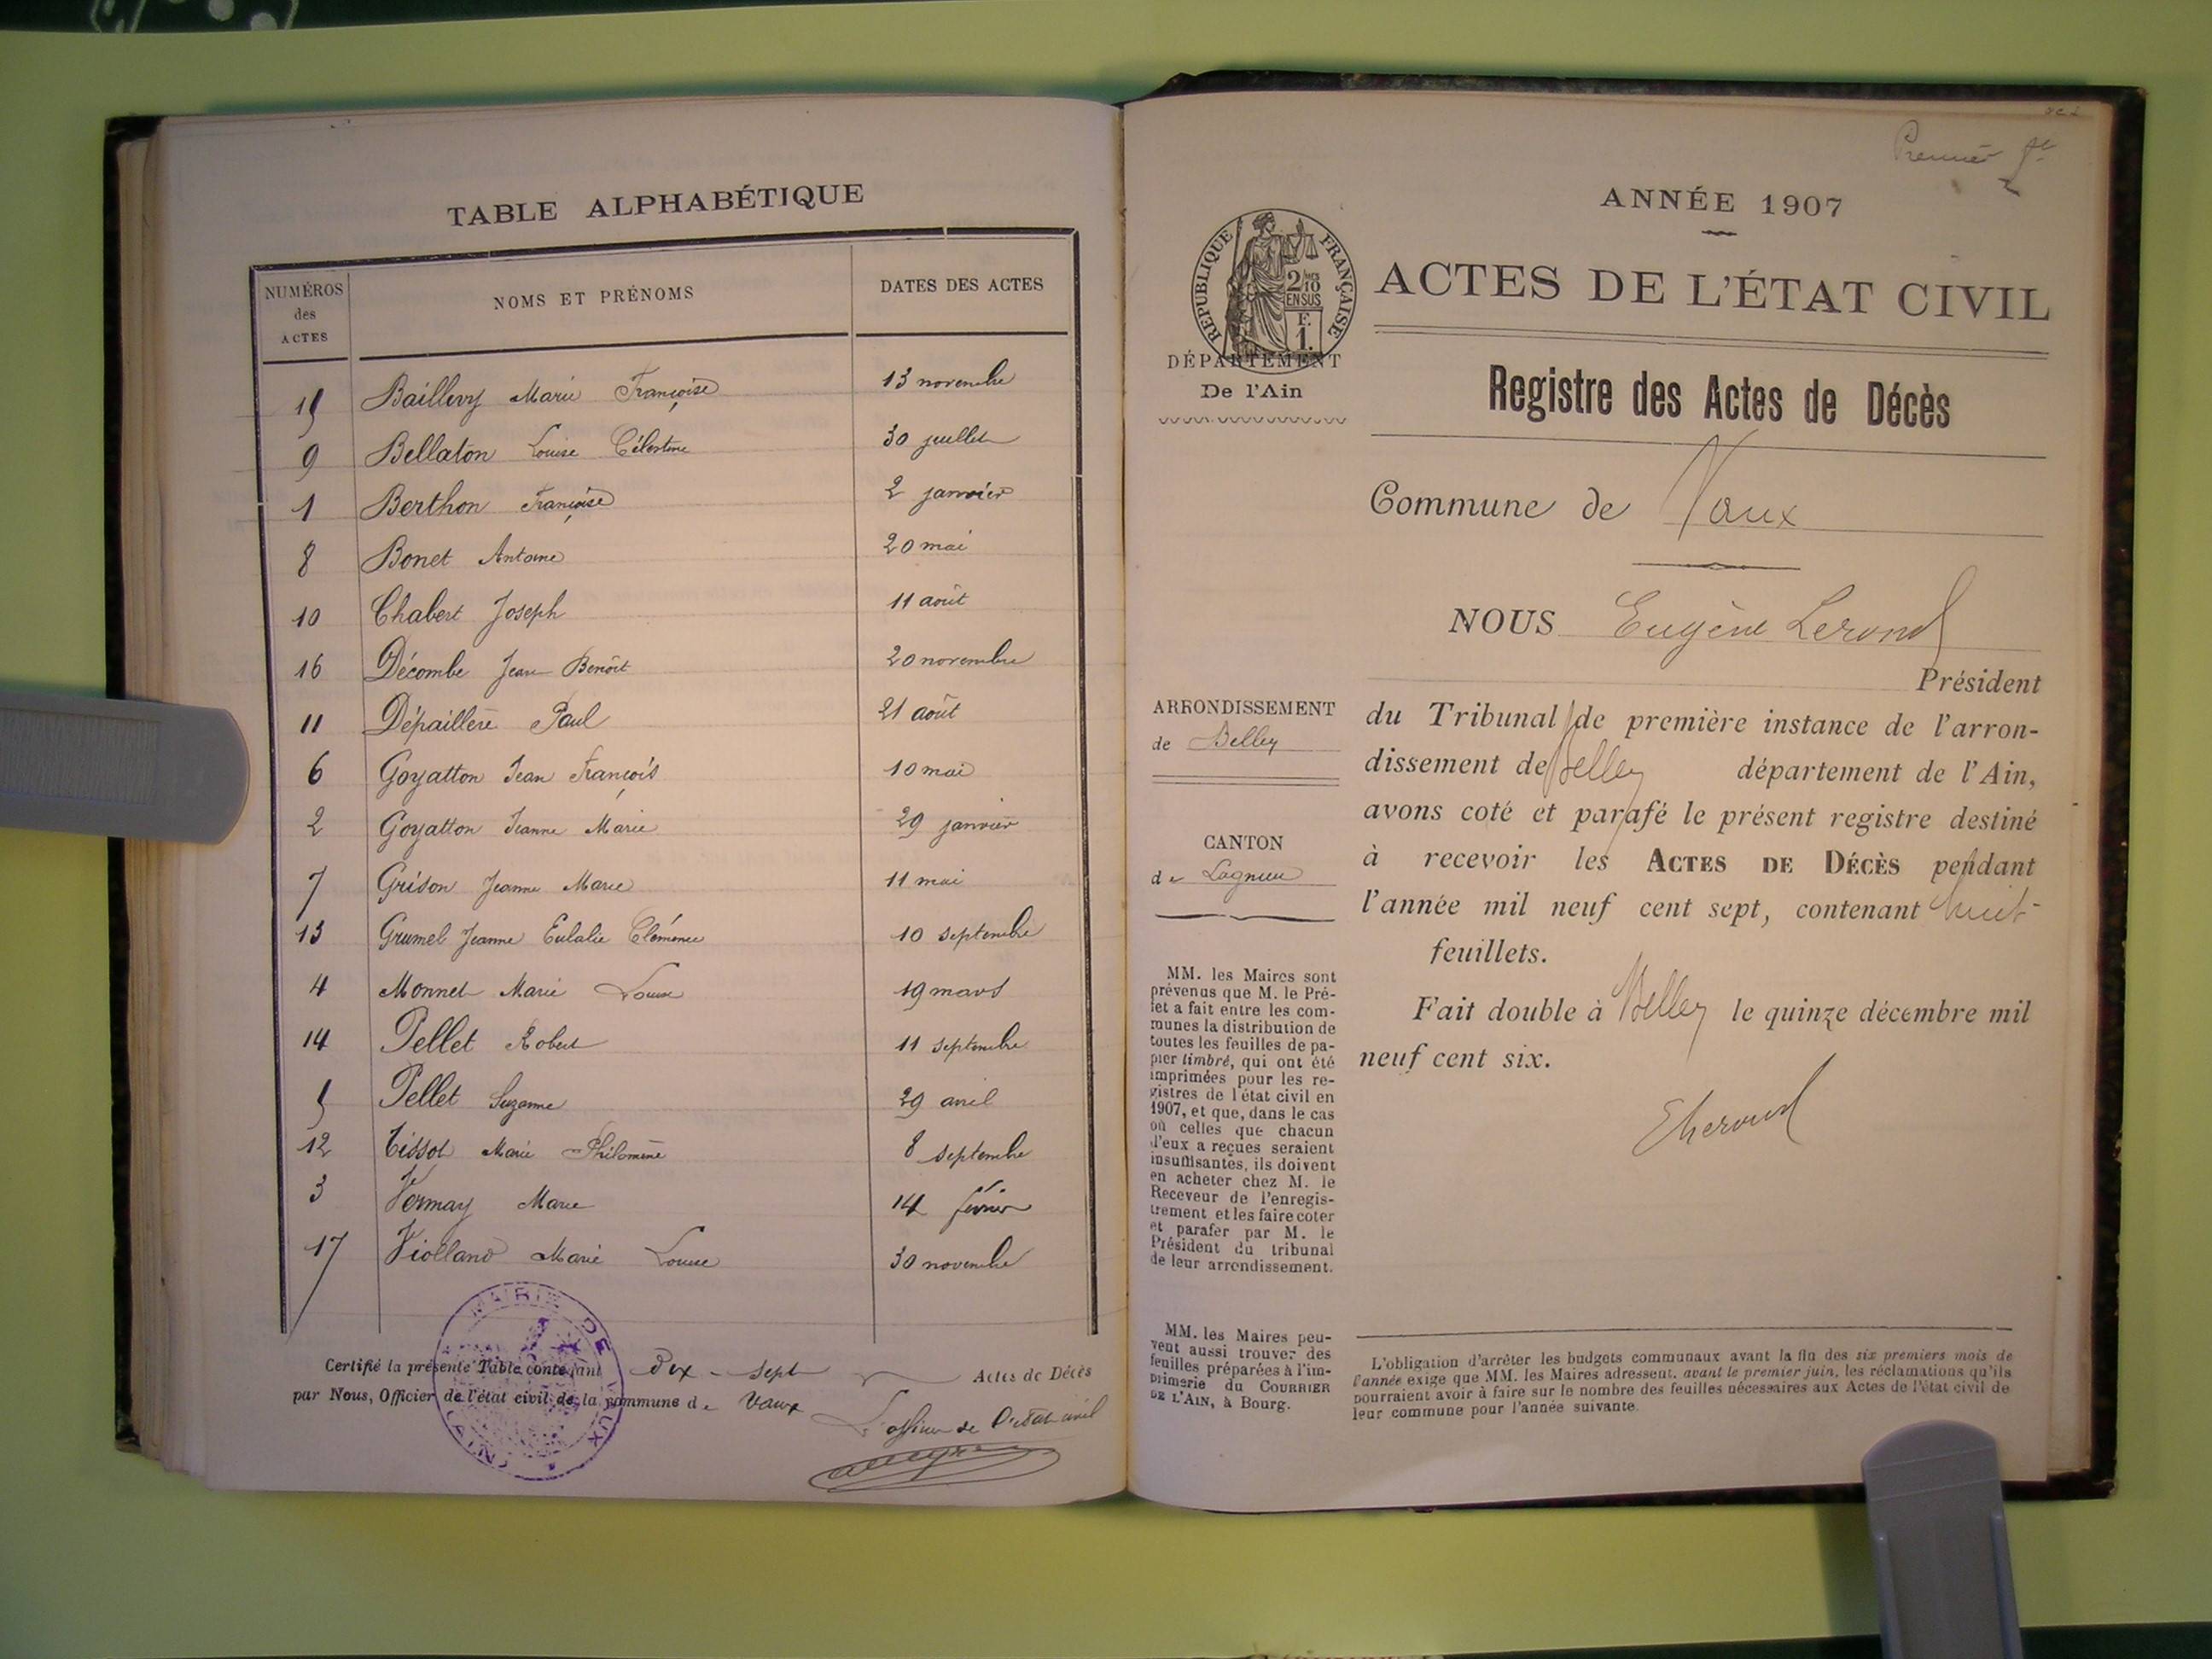 TABLE ALPHABÉTIQUE
NUMÉROS des ACTES
NOMS ET PRÉNOMS
DATES DES ACTES
15 Baillevy Marie Françoise 13 novembre
9 Bellaton Louise Célestine 30 juillet
1 Berthon Françoise 2 janvier
8 Bonet Antoine 20 mai
10 Chabert Joseph 11 août
16 Décombe Jean Benoît 20 novembre
11 Dépaillère Paul 21 août
6 Goyatton Jean François 10 mai
2 Goyatton Jeanne Marie 29 janvier
7 Grison Jeanne Marie 11 mai
13 Grumel Jeanne Eulalie Clémence 10 septembre
4 Monnet Marie Louise 19 mars
14 Pellet Robert 11 septembre
5 Pellet Suzanne 29 avril
12 Tissot Marie Philomène 8 septembre
3 Vermay Marie 14 février
17 Violland Marie Louise 30 novembre
Certifié la présente Table contenant dix-sept Actes de Décès
par Nous, Officier de l'état civil de la commune de Vaux
L'officier de l'état civil
MAIRIE DE VAUX (AIN)
Premier
ANNÉE 1907
ACTES DE L'ÉTAT CIVIL
RÉPUBLIQUE FRANÇAISE
2/10
EN SUS
F.
1.
DÉPARTEMENT
De l'Ain
Registre des Actes de Décès
Commune de Vaux
NOUS Eugène Lerond
Président
du Tribunal de première instance de l'arron-
dissement de Belley département de l'Ain,
avons coté et parafé le présent registre destiné
à recevoir les ACTES DE DÉCÈS pendant
l'année mil neuf cent sept, contenant huit
feuillets.
Fait double à Belley le quinze décembre mil
neuf cent six.
ELerond
ARRONDISSEMENT
de Belley
CANTON
de Lagnieu
MM. les Maires sont
prévenus que M. le Pré-
fet a fait entre les com-
munes la distribution de
toutes les feuilles de pa-
pier timbré, qui ont été
imprimées pour les re-
gistres de l'état civil en
1907, et que, dans le cas
où celles que chacun
d'eux a reçues seraient
insuffisantes, ils doivent
en acheter chez M. le
Receveur de l'enregis-
trement et les faire coter
et parafer par M. le
Président du tribunal
de leur arrondissement.
MM. les Maires peu-
vent aussi trouver des
feuilles préparées à l'im-
primerie du COURRIER
DE L'AIN, à Bourg.
L'obligation d'arrêter les budgets communaux avant la fin des six premiers mois de
l'année exige que MM. les Maires adressent, avant le premier juin, les réclamations qu'ils
pourraient avoir à faire sur le nombre des feuilles nécessaires aux Actes de l'état civil de
leur commune pour l'année suivante.